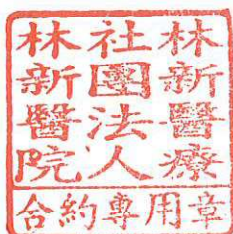 林新醫療
社團法人
林新醫院
合約專用章